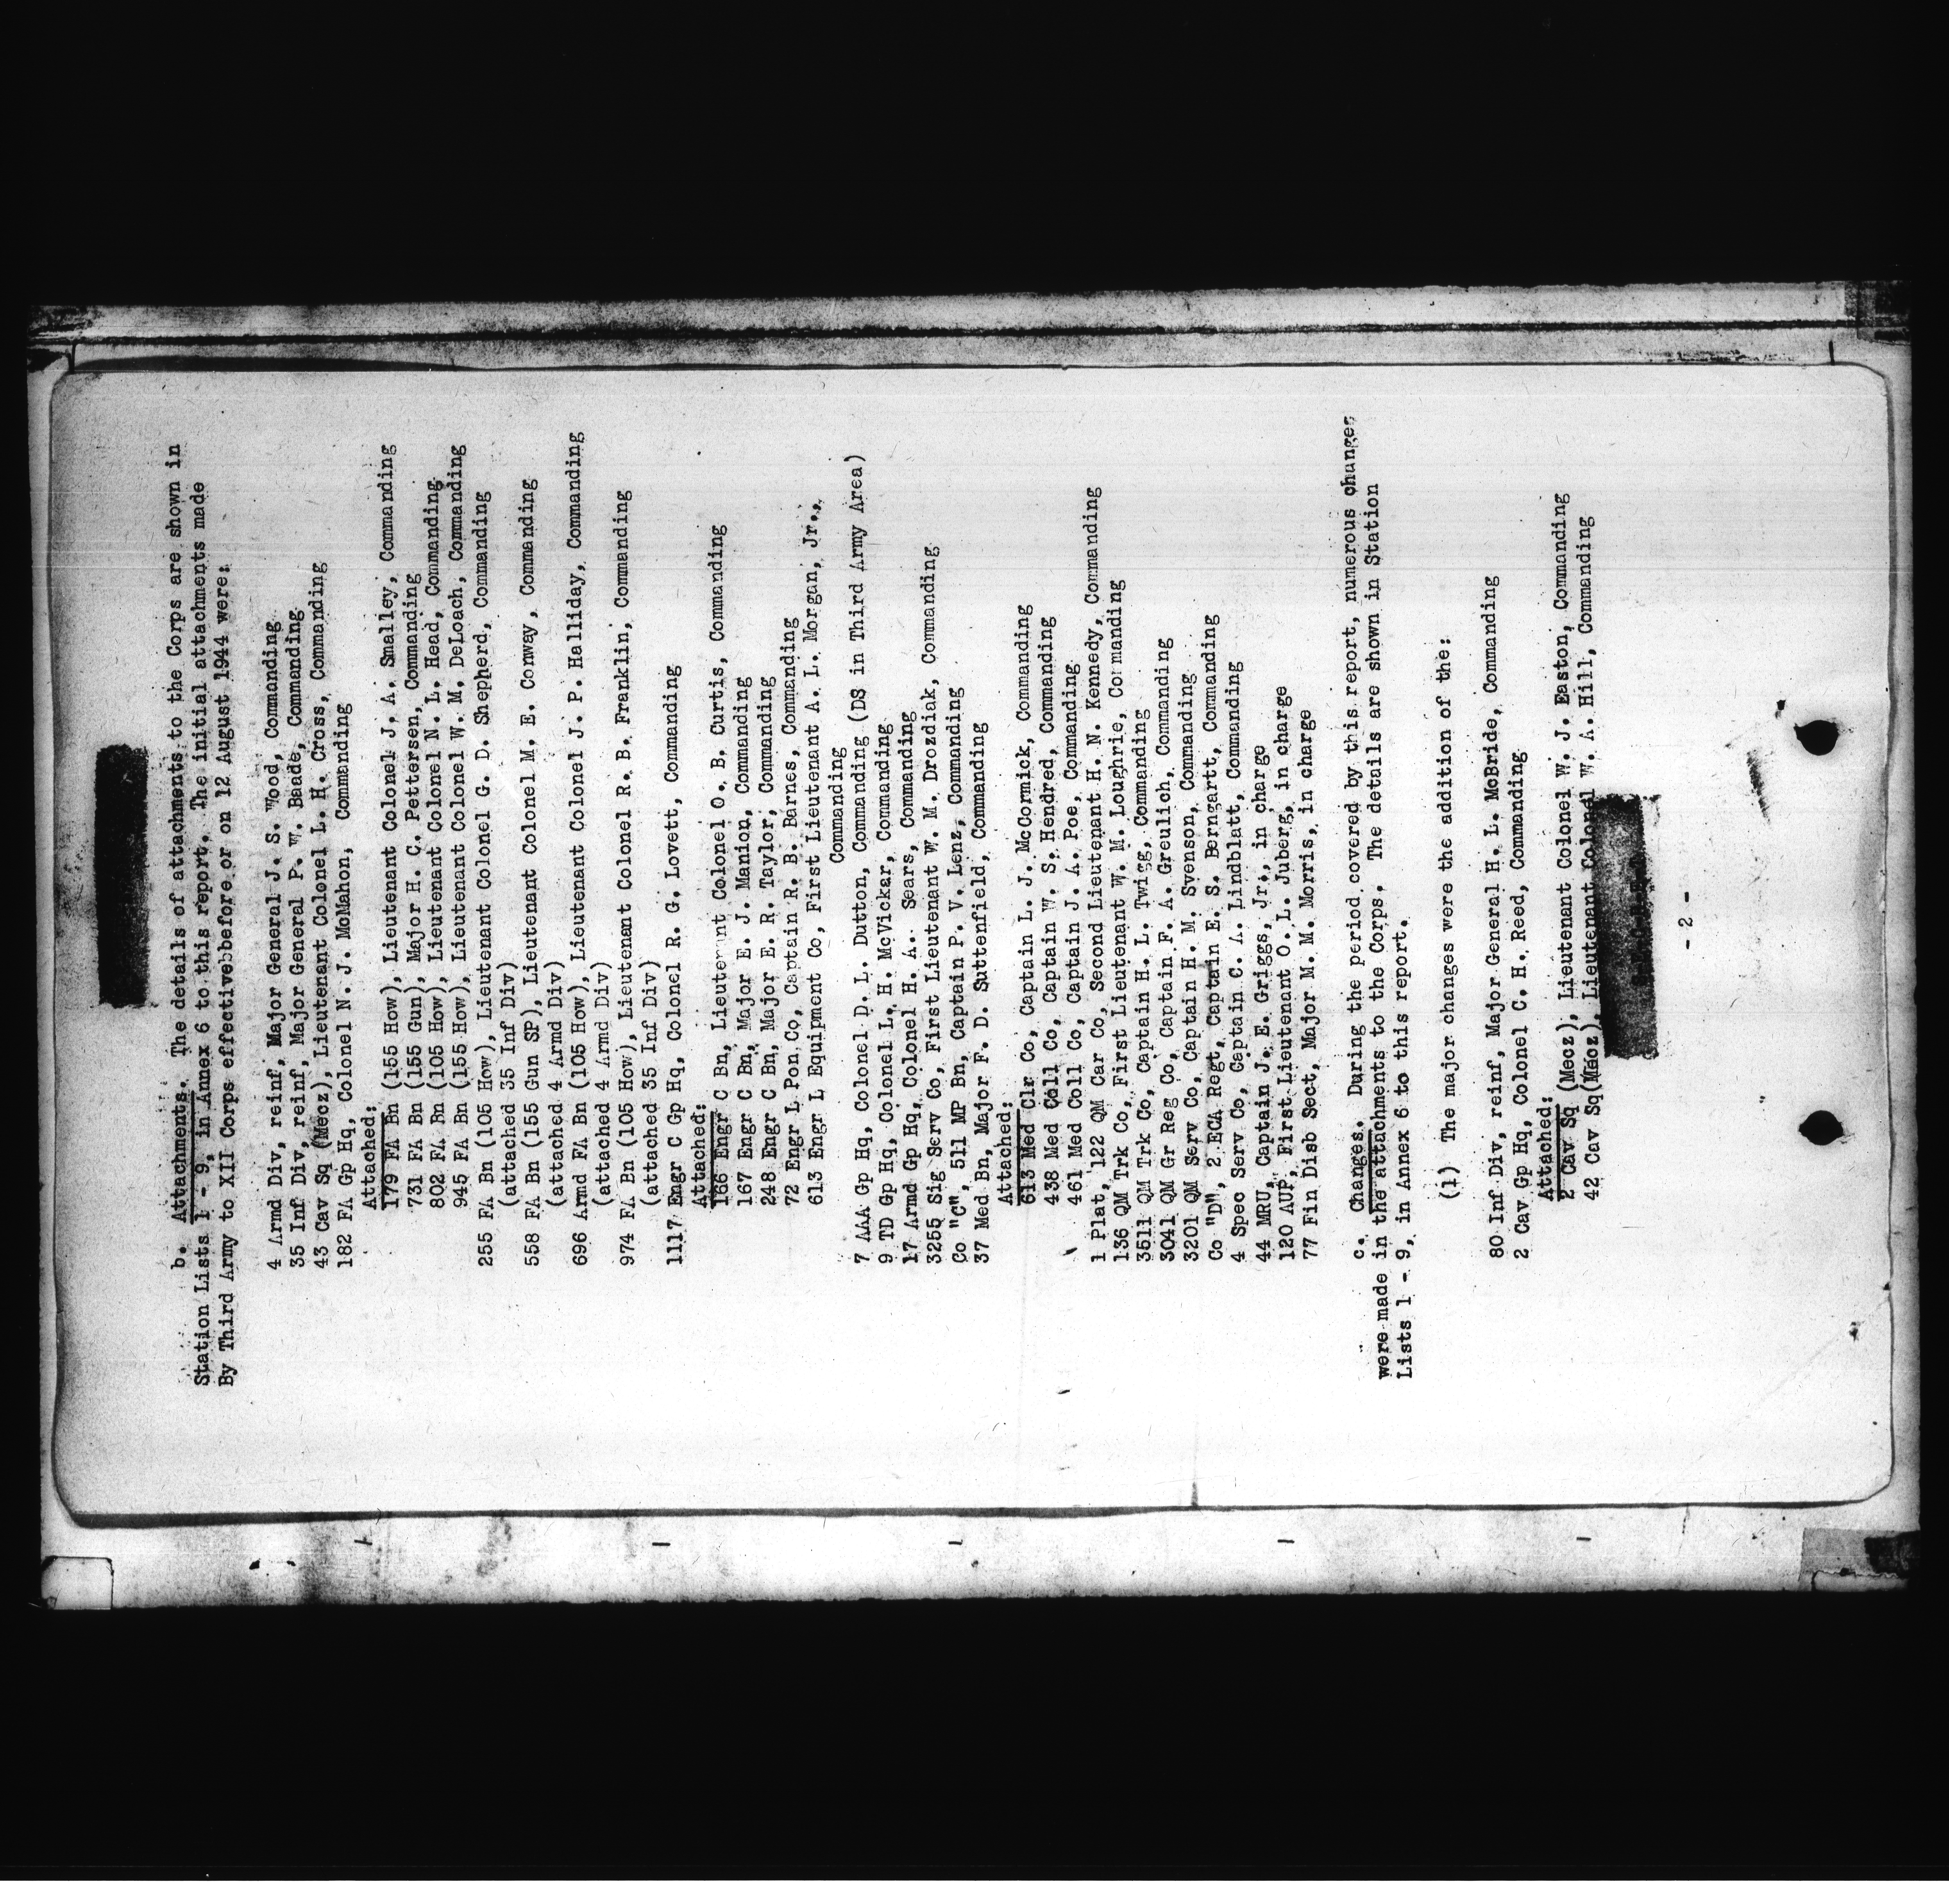 b. Attachments. The details of attachments to the Corps are shown in
Station Lists 1 - 9, in Annex 6 to this report. The initial attachments made
By Third Army to XII Corps effectivebbefore or on 12 August 1944 were:
4 Armd Div, reinf, Major General J. S. Wood, Commanding
35 Inf Div, reinf, Major General P. W. Baade, Commanding
43 Cav Sq (Mecz), Lieutenant Colonel L. H. Cross, Commanding
182 FA Gp Hq, Colonel N. J. McMahon, Commanding
Attached:
179 FA Bn (155 How), Lieutenant Colonel J. A. Smalley, Commanding
731 FA Bn (155 Gun), Major H. C. Pettersen, Commanding
802 FA Bn (105 How), Lieutenant Colonel N. L. Head, Commanding
945 FA Bn (155 How), Lieutenant Colonel W. M. DeLoach, Commanding
255 FA Bn (105 How), Lieutenant Colonel G. D. Shepherd, Commanding
(attached 35 Inf Div)
558 FA Bn (155 Gun SP), Lieutenant Colonel M. E. Conway, Commanding
(attached 4 Armd Div)
696 Armd FA Bn (105 How), Lieutenant Colonel J. P. Halliday, Commanding
(attached 4 Armd Div)
974 FA Bn (105 How), Lieutenant Colonel R. B. Franklin, Commanding
(attached 35 Inf Div)
1117 Engr C Gp Hq, Colonel R. G. Lovett, Commanding
Attached:
166 Engr C Bn, Lieutenant Colonel O. B. Curtis, Commanding
167 Engr C Bn, Major E. J. Manion, Commanding
248 Engr C Bn, Major E. R. Taylor, Commanding
72 Engr L Pon Co, Captain R. B. Barnes, Commanding
613 Engr L Equipment Co, First Lieutenant A. L. Morgan, Jr.,
Commanding
7 AAA Gp Hq, Colonel D. L. Dutton, Commanding (DS in Third Army Area)
9 TD Gp Hq, Colonel L. H. McVickar, Commanding
17 Armd Gp Hq, Colonel H. A. Sears, Commanding
3255 Sig Serv Co, First Lieutenant W. M. Drozdiak, Commanding
Co "C", 511 MP Bn, Captain P. V. Lenz, Commanding
37 Med Bn, Major F. D. Suttenfield, Commanding
Attached:
613 Med Clr Co, Captain L. J. McCormick, Commanding
438 Med Coll Co, Captain W. S. Hendred, Commanding
461 Med Coll Co, Captain J. A. Poe, Commanding
1 Plat, 122 QM Car Co, Second Lieutenant H. N. Kennedy, Commanding
136 QM Trk Co, First Lieutenant W. M. Loughrie, Commanding
3511 QM Trk Co, Captain H. L. Twigg, Commanding
3041 QM Gr Reg Co, Captain F. A. Greulich, Commanding
3201 QM Serv Co, Captain H. M. Svenson, Commanding
Co "D", 2 ECA Regt, Captain E. S. Berngartt, Commanding
4 Spec Serv Co, Captain C. A. Lindblatt, Commanding
44 MRU, Captain J. E. Griggs, Jr., in charge
120 AUP, First Lieutenant O. L. Juberg, in charge
77 Fin Disb Sect, Major M. M. Morris, in charge
c. Changes. During the period covered by this report, numerous changes
were made in the attachments to the Corps. The details are shown in Station
Lists 1 - 9, in Annex 6 to this report.
(1) The major changes were the addition of the:
80 Inf Div, reinf, Major General H. L. McBride, Commanding
2 Cav Gp Hq, Colonel C. H. Reed, Commanding
Attached:
2 Cav Sq (Mecz), Lieutenant Colonel W. J. Easton, Commanding
42 Cav Sq(Mecz), Lieutenant Colonel W. A. Hill, Commanding
- 2 -